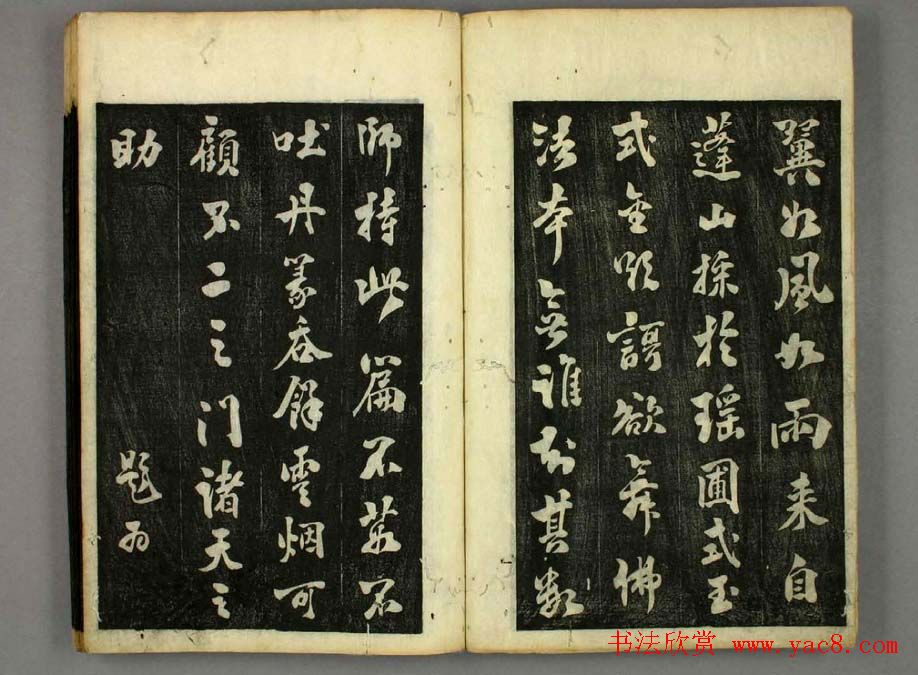 翼如風如雨来自
蓬山採於瑶圃式玉
式金謌欲舞佛
法本無誰知其数
師持此篇不茹不
吐丹篆吞餘雲烟可
顧不二之門諸天之
助 題
书法欣赏 www.yac8.com